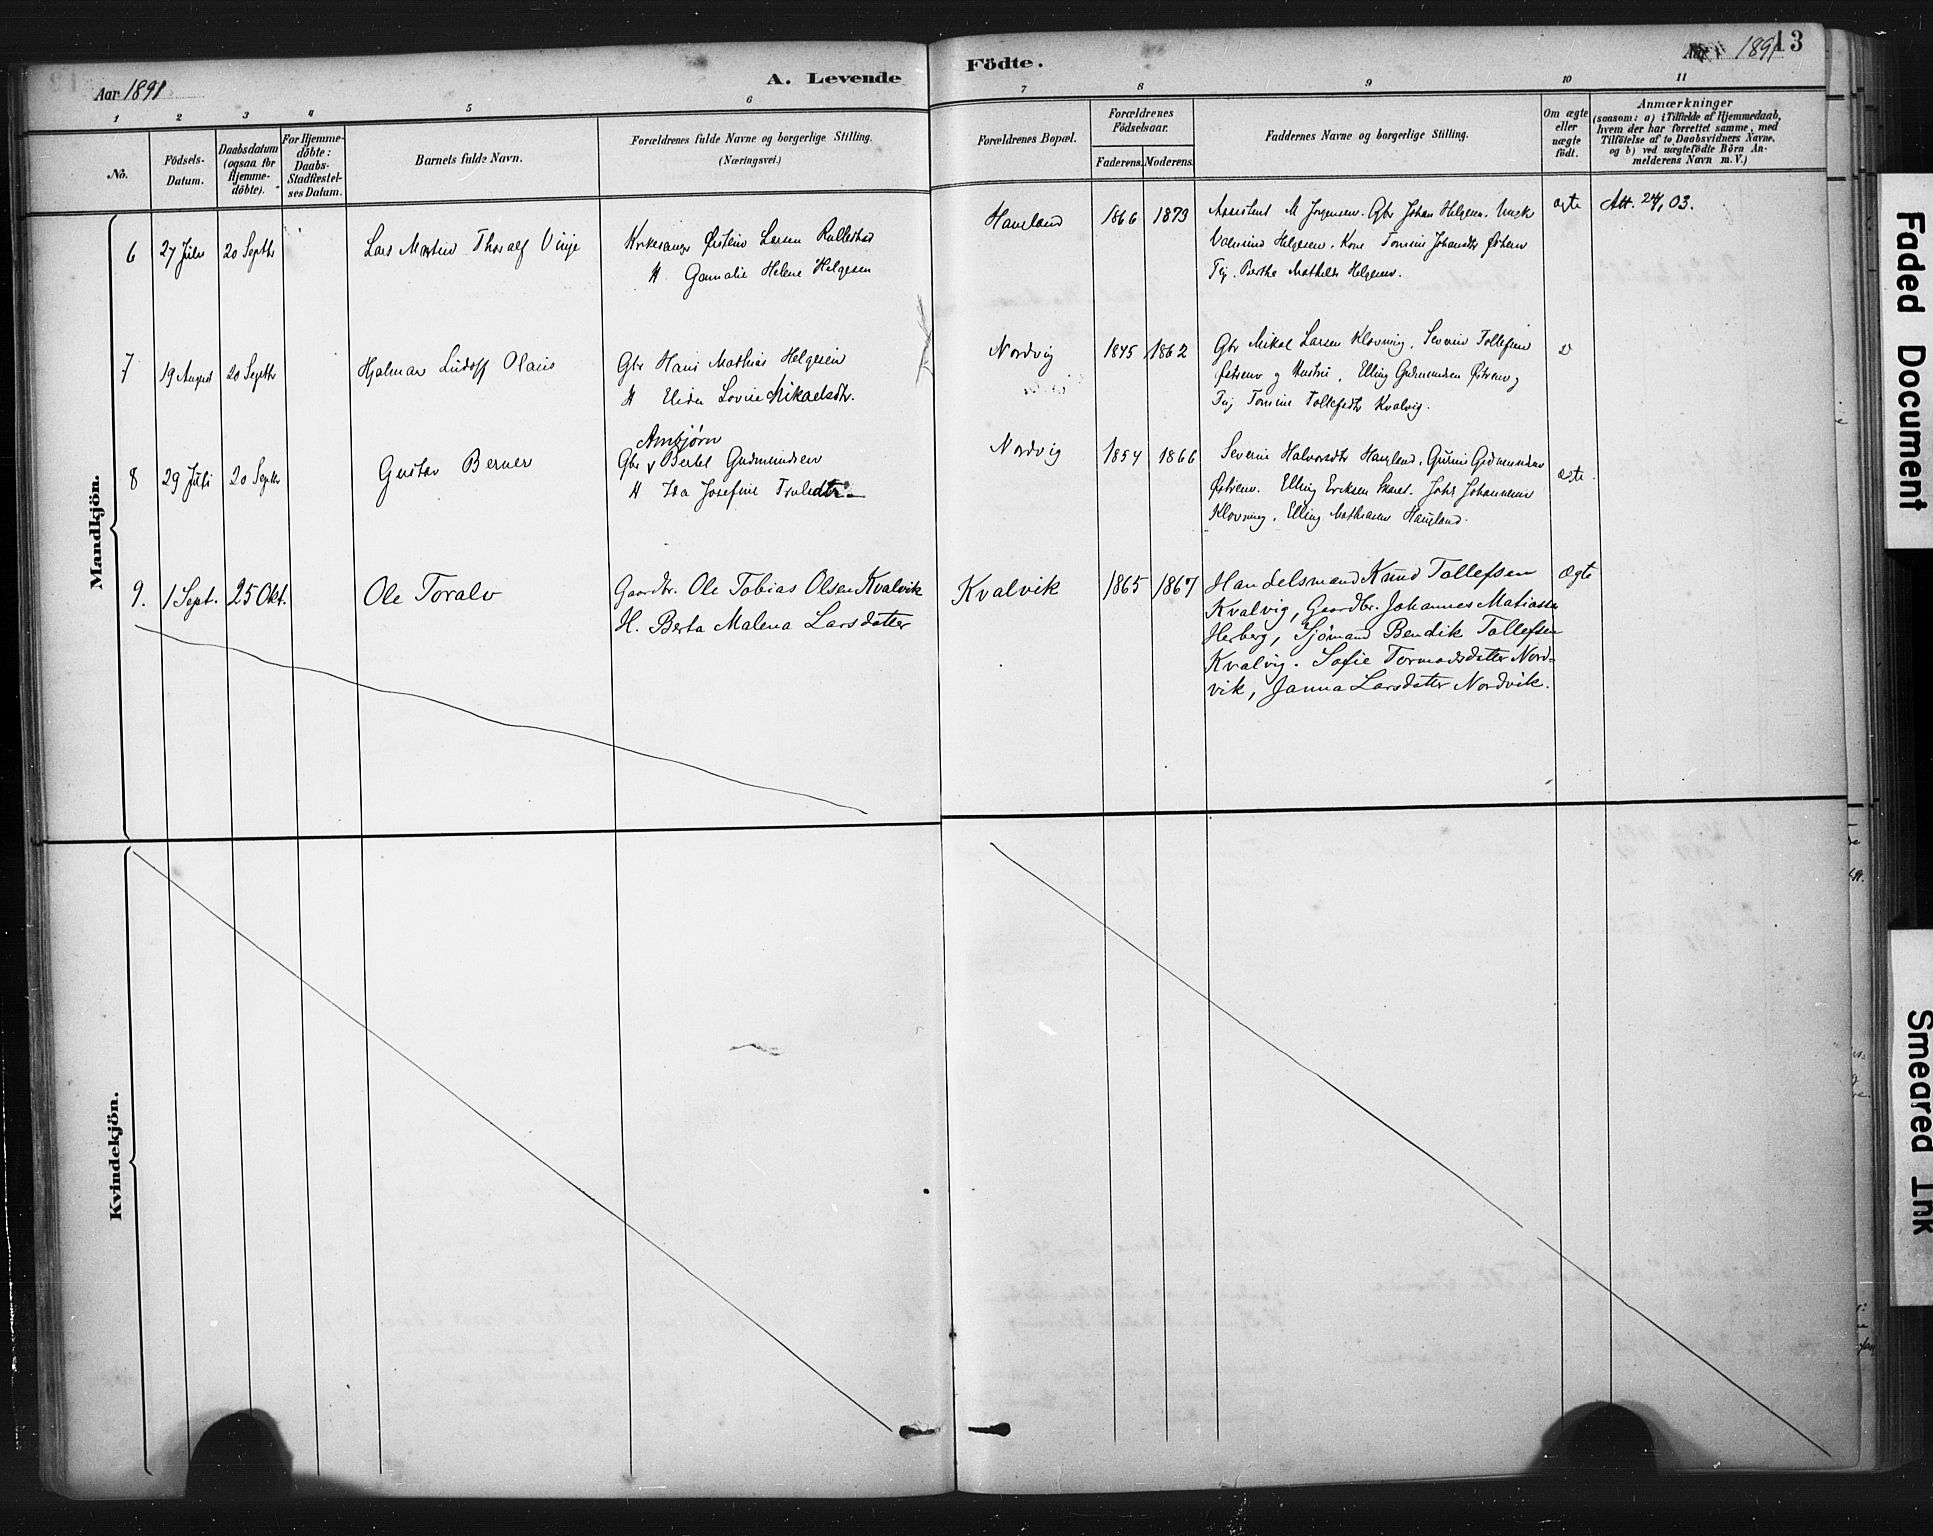 Aar 1891
A. Levende
Födte.
Aar 1891
13
1 2 3 4 5 6 7 8 9 10 11
No.
Födsels-
Datum.
Daabsdatum
(ogsaa for
Hjemme-
döbte).
For Hjemme-
döbte:
Daabs-
Stadfæstel-
ses Datum.
Barnets fulde Navn.
Forældrenes fulde Navne og borgerlige Stilling.
(Næringsvei.)
Forældrenes Bopæl.
Forældrenes
Födselsaar.
Faderens. Moderens.
Faddernes Navne og borgerlige Stilling.
Om ægte
eller
uægte
födt.
Anmærkninger
(saasom: a) i Tilfælde af Hjemmedaab,
hvem der har forrettet samme, med
Tilföielse af to Daabsvidners Navne,
og b) ved uægtefödte Börn An-
melderens Navn m. V.)
Mandkjön.
6 27 Juli 20 Septbr Lars Martin Thoralf Vinje
Kirkesanger Østein Larsen Rullestad
H Helene Helgesen
Haugland 1866 1873
Assistent M Jørgensen. Gbr Johan Helgesen. Ungk
Helgesen. Kone Tomine Johansdtr
Pig. Berthe Mathilde Helgesen.
ægte
Att. 24/1 03.
7 19 August 20 Septbr Hjalmar Ludolf Olaus
Gbr Hans Mathias Helgesen
H Elida Lovise Mikaelsdtr.
Nordvig 1845 1862
Gbr Mikal Larsen Klovning, Severin Tollefsen
Østrem og Hustru, Elling Gudmundsen Østrem,
Pig Tomine Tollefsdtr Kvalvig.
8 29 Juli 20 Septbr Gustav Berner
Arnbjørn
Gbr v Bertel Gudmundsen
H Ida Josefine
Nordvig 1854 1866
Severine Halvorsdtr Haugland, Gurine Gudmundsen
Østrem. Elling Eriksen Skaret. Johs Johannesen
Klovning, Elling Mathiasen Haugland.
ægte.
9. 1 Sept. 25 Okt. Ole Toralv
Gaardbr. Ole Tobias Olsen Kvalvik
H. Berta Malena Larsdatter
Kvalvik 1865 1867
Handelsmand Knud Tollefsen
Kvalvig, Gaardbr. Johannes Matiassen
Herberg, Sjömand Bendik Tollefsen
Kvalvig. Sofie Tormodsdatter Nord-
vik, Janna Larsdatter Nordvik.
Ægte
Kvindekjön.
Faded Document
Smeared Ink